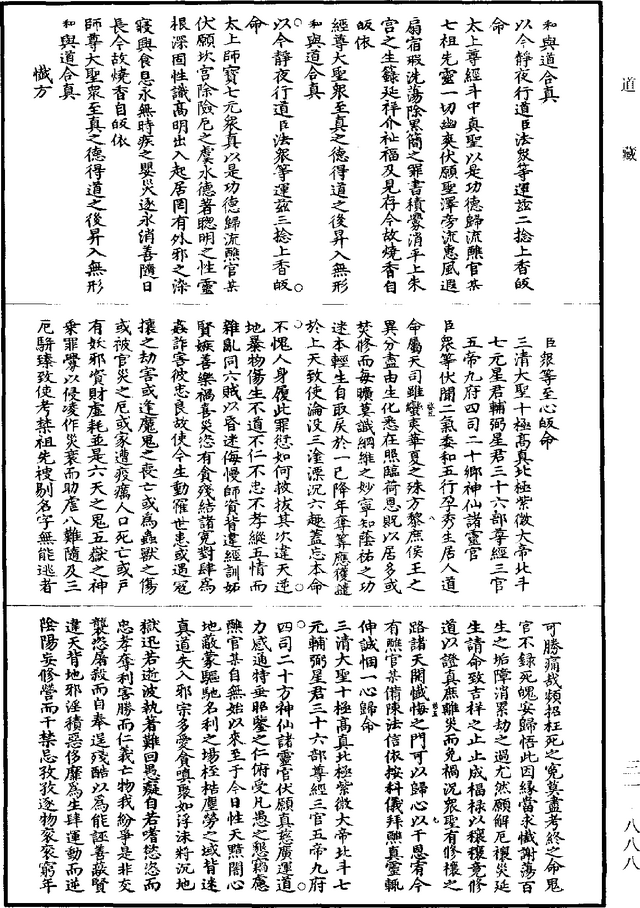 道藏
和與道合真
以今靜夜行道臣法衆等運茲二捻上香皈
命
太上尊經斗中真聖以是功德歸流醮官某
七祖先靈一切幽爽伏願聖澤旁流惠風遐
扇宿瑕洗蕩除黑簡之罪書積釁消平上朱
宫之生籙延祥介祉福及見存今故燒香自
皈依
經尊大聖衆至真之德得道之後昇入無形
和與道合真
以今靜夜行道臣法衆等運茲三捻上香皈
命
太上師寶七元衆真以是功德歸流醮官某
伏願坎宫除險厄之塵永德著聰明之性靈
根深固性識高明出入起居罔有外邪之滲
寢興食息永無時疾之嬰災逐永消善隨日
長今故燒香自皈依
師尊大聖衆至真之德得道之後昇入無形
和與道合真
懺方
臣衆等至心皈命
三清大聖十極高真北極紫微大帝北斗
七元星君輔弼星君三十六部尊經三官
五帝九府四司二十鄉神仙諸靈官
臣衆等伏聞二氣委和五行孕秀生居人道
命屬天司雖蠻夷華夏之殊方黎庶侯王之
異分盡由生化悉在照臨荷恩既以居多或
焚修而每曠莫識綱維之妙寧知陰祐之功
迷本輕生自取戾於一己降年奪筭應獲譴
於上天致使淪没三塗漂沉六趣蓋忘本命
不愧人身履此罪愆如何披拔其次違天逆
地暴物傷生不道不仁不忠不孝縱五情而
雜亂同六賊以昏迷侮慢師資背違經訓妬
賢嫉善樂禍喜災恣有貪殘結諸寃對肆爲
姦詐害彼忠良故使今生動罹世患或遇寇
攘之劫害或逢魔鬼之喪亡或爲蟲獸之傷
或被官災之厄或家遭疫癘人口死亡或戸
有妖邪資財虛耗並是六天之鬼五嶽之神
乗罪釁以侵凌作災衰而助虐八難隨及三
厄騈臻致使考禁祖先被剔名字無能逃者
可勝痛哉頻招枉死之寃莫盡考終之命鬼
官不錄死魄妄歸悟此因緣當求懺謝蕩百
生之垢障消累劫之過尤然願解厄禳災延
生請命致吉祥之止止成福禄以穰穰竟修
道以證真庶離災而免禍況衆聖有修禳之
路諸天開懺悔之門可以歸心以干恩宥今
有醮官某備陳法信依按科儀拜醮真靈輒
伸誠悃一心歸命
三清大聖十極高真北極紫微大帝北斗七
元輔弼星君三十六部尊經三官五帝九府
四司二十方神仙諸靈官伏願真慈廣運道
力感通特垂昭鑒之仁俯受凡愚之懇竊應
醮官某自無始以來至于今日性天黯闇心
地蔽蒙驅馳名利之場桎梏塵勞之域背迷
真道失入邪宗多愛貪嗔聚如浮沫將沉地
獄迅若逝波執著難回愚癡自若耆慾恣而
忠孝奪利害勝而仁義亡物我紛爭是非交
襲恣屠殺而自奉逞殘酷以爲能誣善蔽賢
違天背地邪淫積惡侈靡爲生肆運動而逆
陰陽妄修營而干禁忌孜孜逐物衮衮窮年
三一　八八八